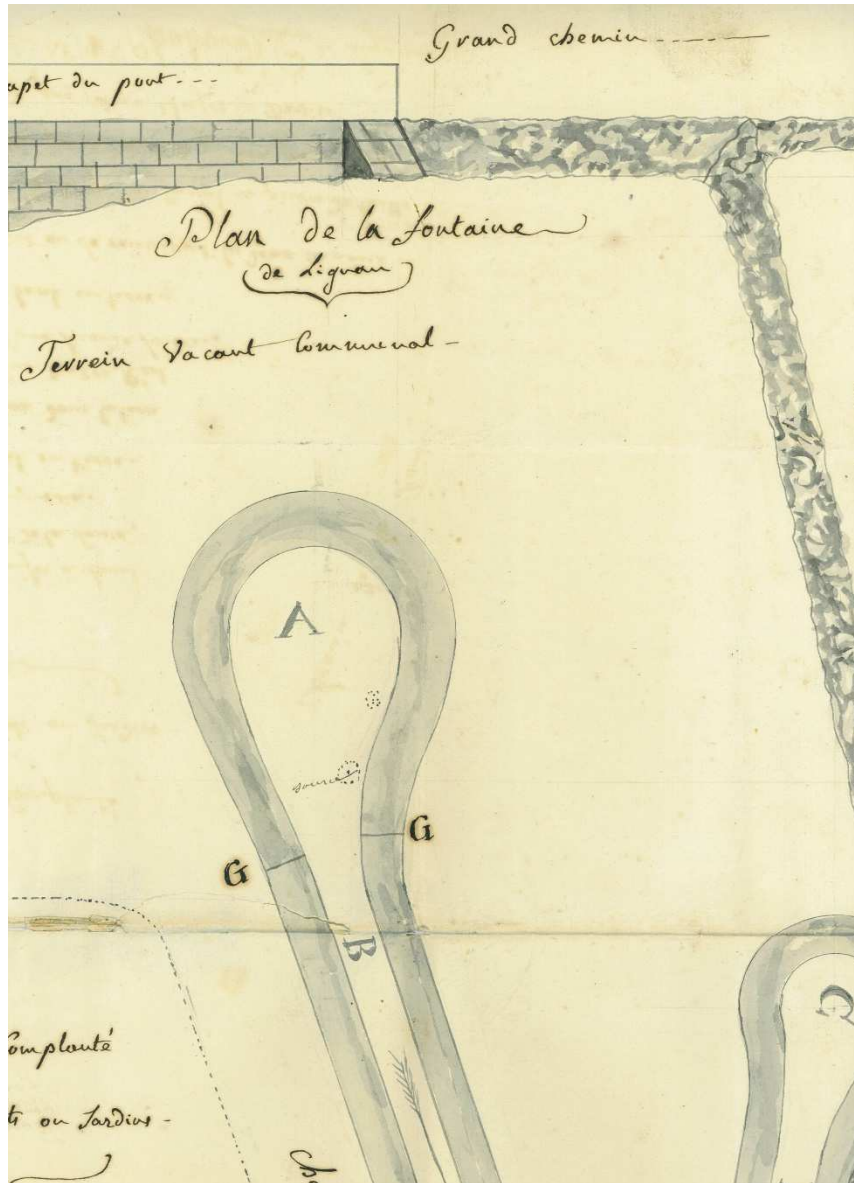 Grand chemin
apet du pont
Plan de la fontaine
de Lignan
Terrein Vacant Communal
A
source
G
G
B
C
Complanté
ts ou Jardins